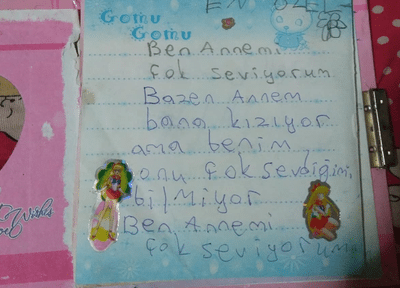 Gomu
Gomu
Ben Annemi
Çok seviyorum
Bazen Annem
bana kızıyor
ama benim
onu çok sevdiğimi
bilmiyor
Ben Annemi
çok seviyorum
Wishes